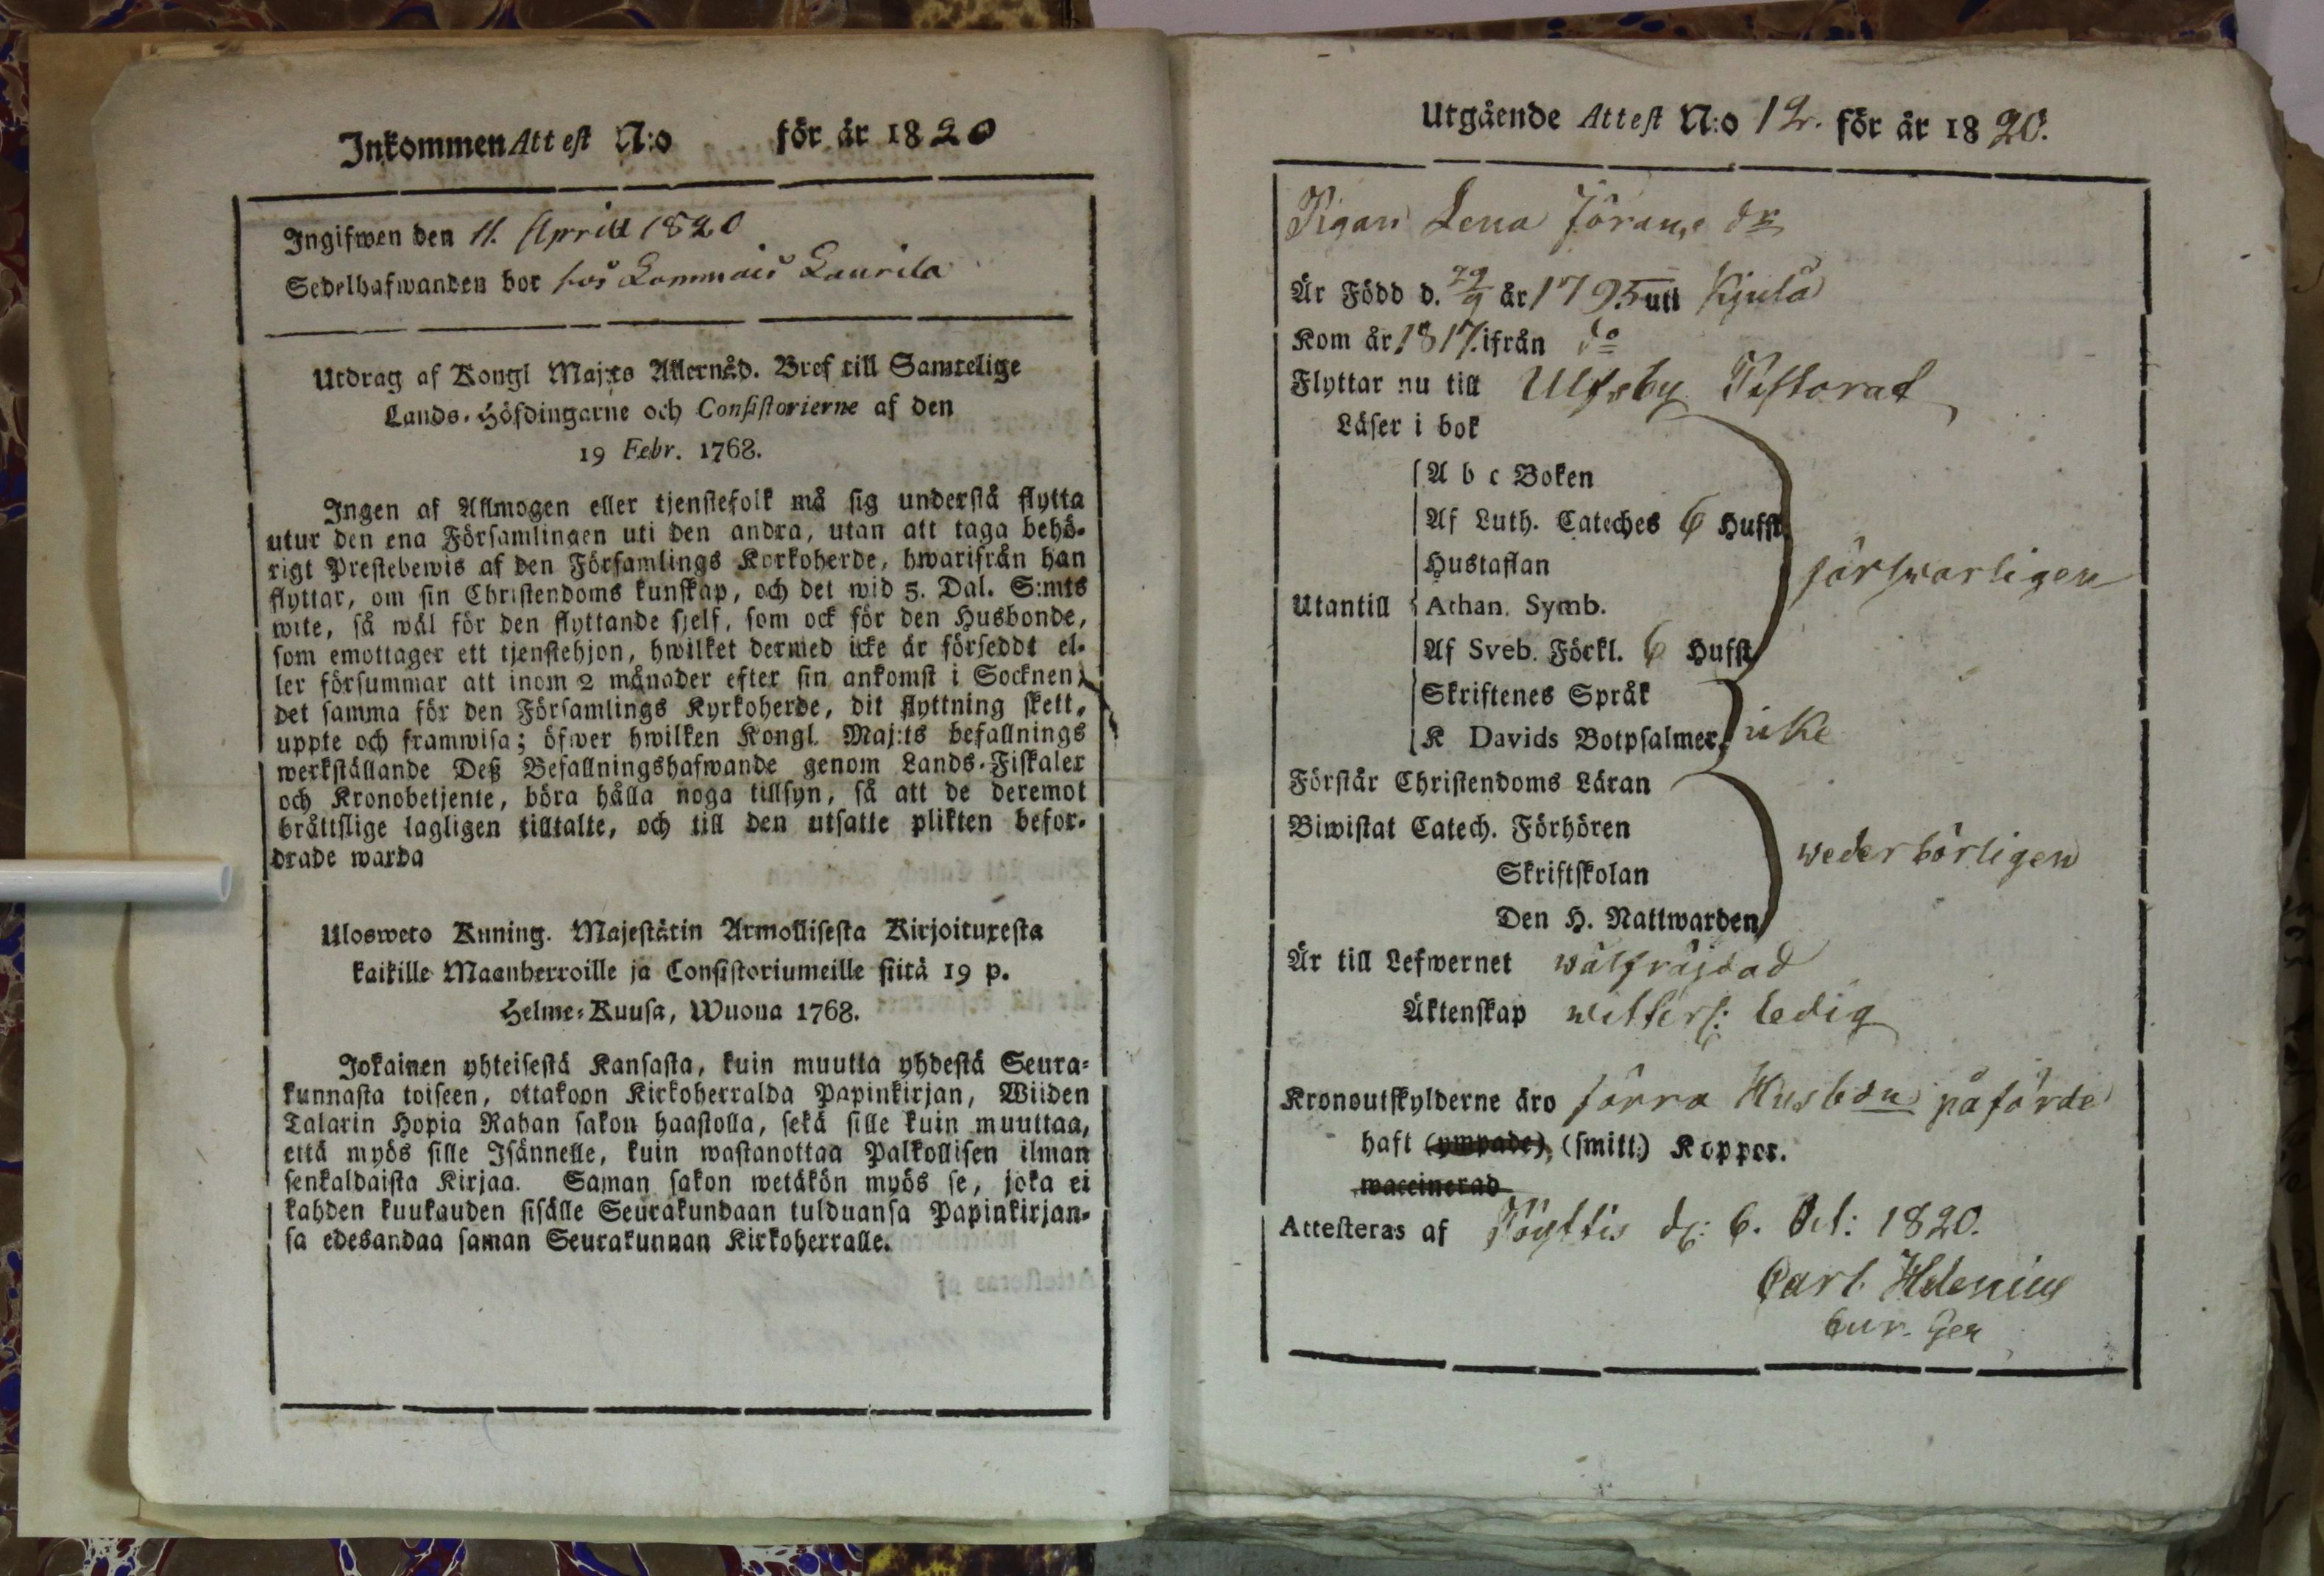 Inkommen Attest N:o för år 1820
Ingifwen den 11. Aprill 1820
Sedelhafwanden bor hos Lammais Laurila
Utdrag af Kongl Maj:ts Allernåd. Bref till Samtelige
Lands-Höfdingarne och Consistorierne af den
19 Febr. 1768.
Ingen af Allmogen eller tjenstefolk må sig understå flytta
utur den ena Församlingen uti den andra, utan att taga behö-
rigt Prestebewis af den Församlings Korkoherde, hwarifrån han
flyttar, om sin Christendoms kunskap, och det wid 5. Dal. S:mts
wite, så wäl för den flyttande sjelf, som ock för den Husbonde,
som emottager ett tjenstehjon, hwilket dermed icke är förseddt el-
ler försummar att inom 2 månader efter sin ankomst i Socknen,
det samma för den Församlings Kyrkoherde, dit flyttning skett,
uppte och framwisa; öfwer hwilken Kongl. Maj:ts befallnings
werkställande Deß Befallningshafwande genom Lands-Fiskaler
och Kronobetjente, böra hålla noga tillsyn, så att de deremot
bråttslige lagligen tilltalte, och till den utsatte plikten befor-
drade warda
Ulosweto Kuning. Majestätin Armollisesta Kirjoituxesta
kaikille Maanherroille ja Consistoriumeille siitä 19 p.
Helme-Kuusa, Wuona 1768.
Jokainen yhteisestä Kansasta, kuin muutta yhdestä Seura-
kunnasta toiseen, ottakoon Kirkoherralda Papinkirjan, Wiiden
Talarin Hopia Rahan sakon haastolla, sekä sille kuin muuttaa,
että myös sille Isännelle, kuin wastanottaa Palkollisen ilman
senkaldaista Kirjaa. Saman sakon wetäkön myös se, joka ei
kahden kuukauden sisälle Seurakundaan tulduansa Papinkirjan-
sa edesandaa saman Seurakunnan Kirkoherralle.
Utgående Attest N:o 12. för år 1820.
Pigan Lena Jöran,s dr
Är Född d. 29/9 år 1795 uti Kjula
Kom år 1817. ifrån do
Flyttar nu till Ulfsby Pastorat
Läser i bok
A b c Boken
Af Luth. Cateches 6 Hufst
Hustaflan försvarligen
Utantill Athan. Symb.
Af Sveb. Förkl. 6 Hufst
Skriftenes Språk
K Davids Botpsalmer, icke
Förstår Christendoms Läran
Biwistat Catech. Förhören wederbörligen
Skriftskolan
Den H. Nattwarden
Är till Lefwernet wälfräjdad
Äktenskap witterl: ledig
Kronoutskylderne äro förra Husbdn påförde
haft (ympade), (smitt.) Koppor.
waccinerad
Attesteras af Pöyttis d: 6. Oct: 1820.
Carl Helenius